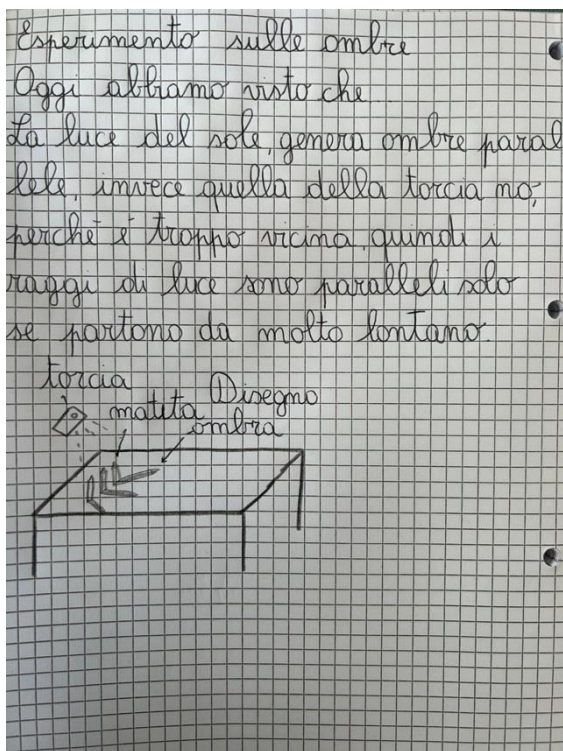 Esperimento sulle ombre
Oggi abbiamo visto che
La luce del sole, genera ombre paral
lele, invece quella della torcia no;
perché è troppo vicina, quindi i
raggi di luce sono paralleli solo
se partono da molto lontano.
torcia
Disegno
matita
ombra